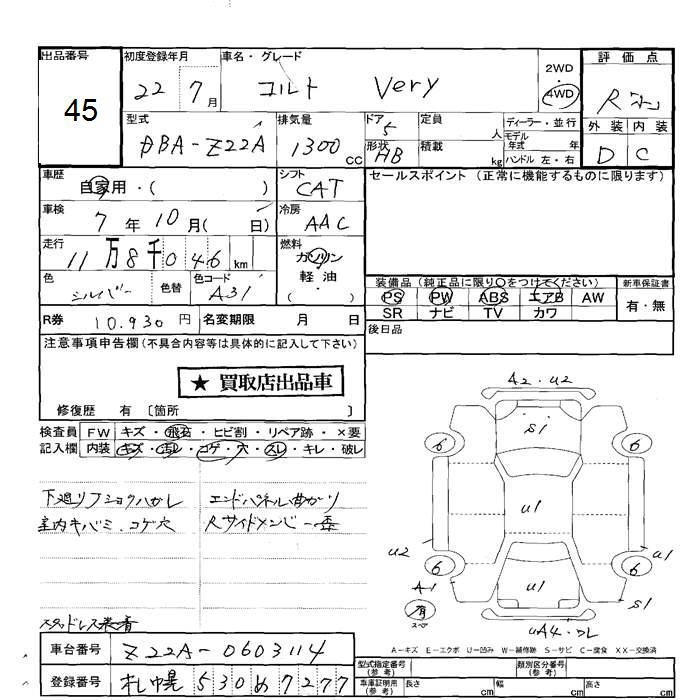 出品番号
45
初度登録年月
22 7月
車名・グレード
コルト Very
2WD
・
4WD
評価点
R
外装 内装
D C
型式
DBA-Z22A
排気量
1300 cc
ドア
5
形状
HB
定員
人
積載
kg
ディーラー・並行
モデル
年式 年
ハンドル 左・右
車歴
自家用・( )
シフト
CAT
セールスポイント (正常に機能するものに限ります)
車検
7年10月( 日)
冷房
AAC
走行
11万8千046km
燃料
ガソリン
軽油
( ・ )
色
シルバー
色替
色コード
A31
装備品 (純正品に限り○をつけてください)
PS PW ABS エアB AW
SR ナビ TV カワ
新車保証書
有・無
R券 10.930円
名変期限 月 日
後日品
注意事項申告欄(不具合内容等は具体的に記入して下さい)
★ 買取店出品車
修復歴 有〔箇所 〕
検査員
記入欄
FW キズ・飛石・ヒビ割・リペア跡・×要
内装 キズ・汚レ・コゲ・穴・スレ・キレ・破レ
下廻りフショクハガレ
室内キバミ・コゲ穴
エンドパネル曲がり
Rサイドメンバー歪
スタッドレス装着
A2・U2
S1
6 6
U1
U2 U1
6 6
A1 U1
有
スペ
S1
UA4・ワレ
A-キズ E-エクボ U-凹み W-補修跡 S-サビ C-腐食 XX-交換済
車台番号 Z22A-0603114
登録番号 札幌 530 め 7277
型式指定番号
(参考)
類別区分番号
(参考)
車庫証明用
(参考)
長さ cm
幅 cm
高さ cm